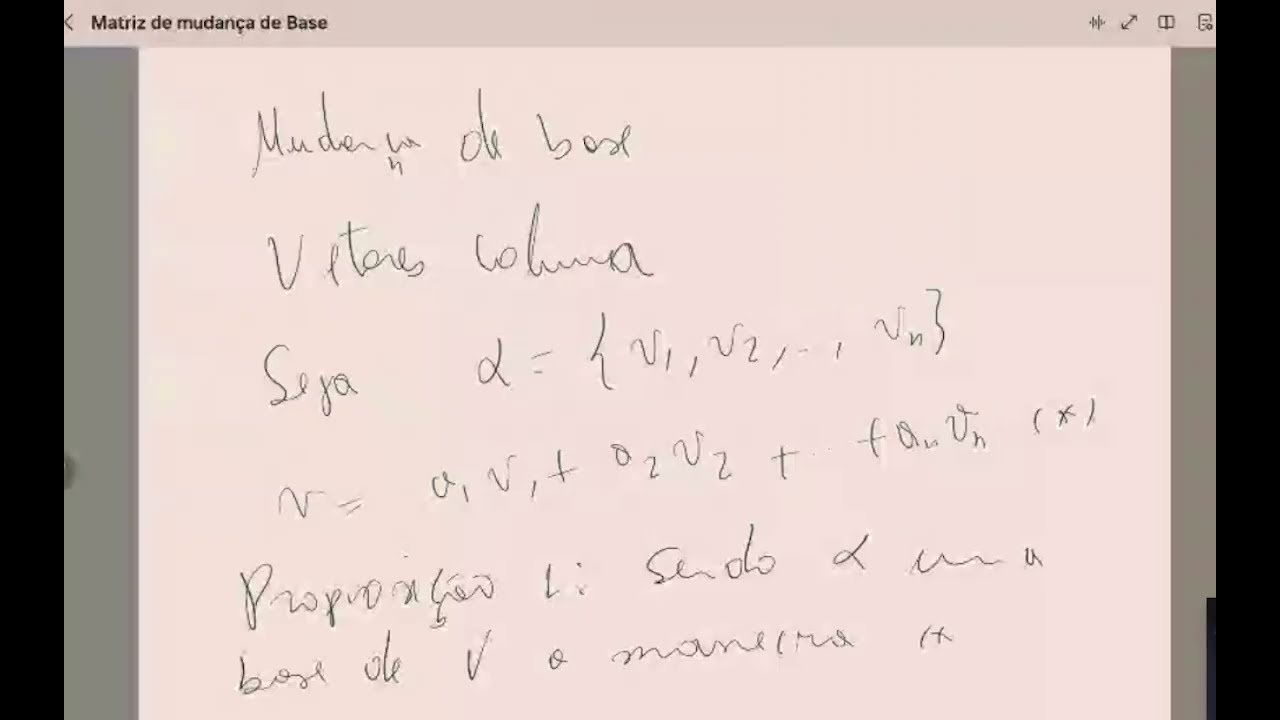 Matriz de mudança de Base
Mudança de base
Vetores coluna
Seja α = { v1, v2, .., vn}
v = a1 v1 + a2 v2 + ... + an vn (*)
Proposição 1: Sendo α uma
base de V a maneira (*